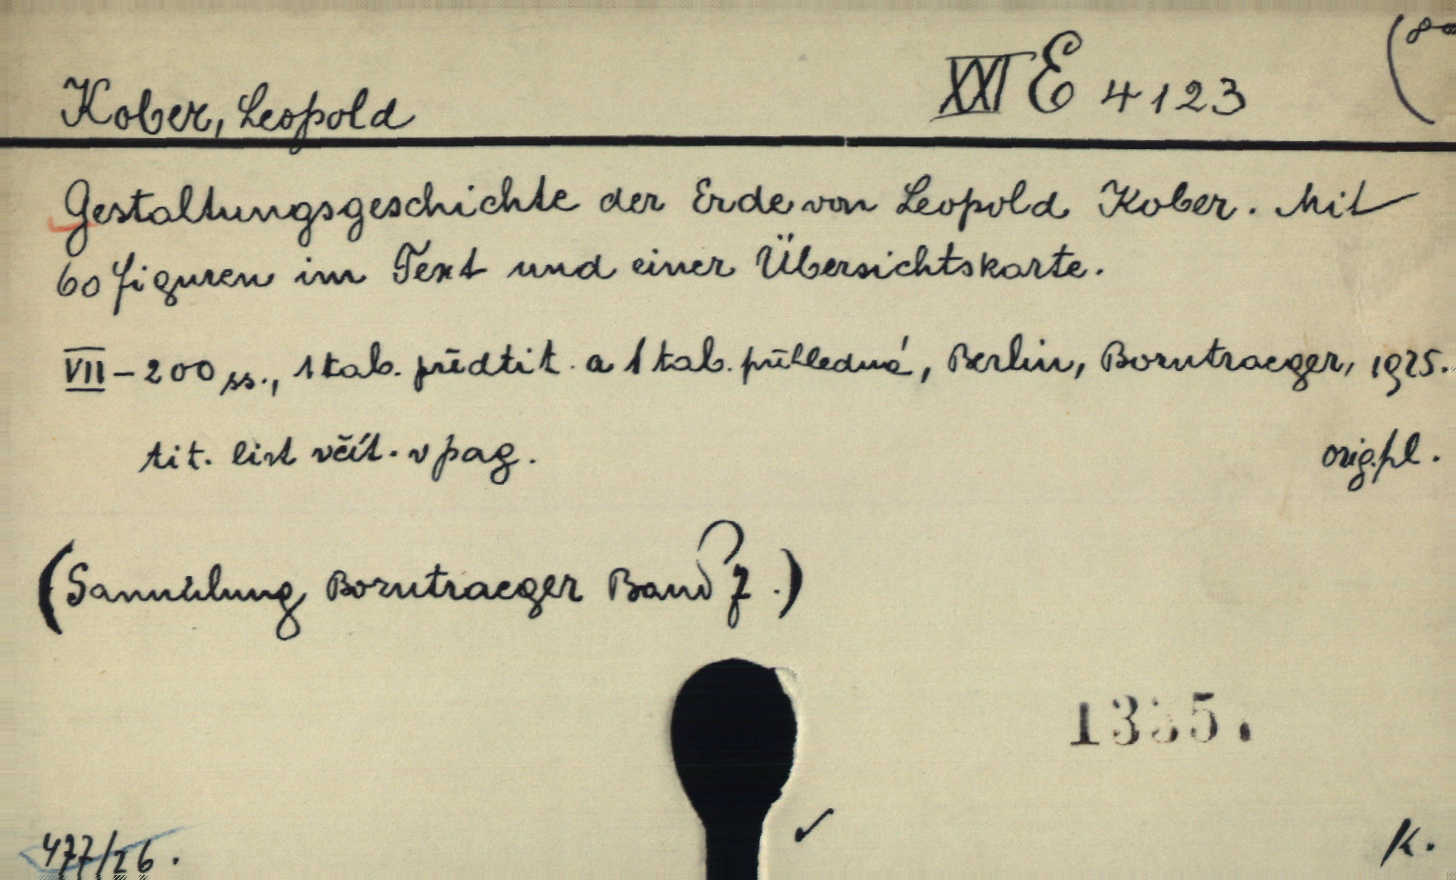 Kober, Leopold XXI E 4123 (8°
Gestaltungsgeschichte der Erde von Leopold Kober. Mit
60 figuren im Text und einer Übersichtskarte.
VII – 200 ss., 1 tab. předtit. a 1 tab. přehledná, Berlin, Borntraeger, 1925.
tit. list včít. v pag. orig. pl.
(Sammlung Borntraeger Band 7.)
477/26. K.